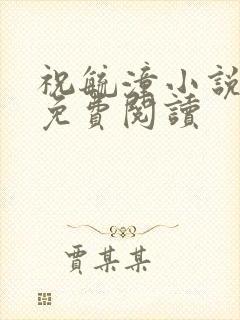 祝毓漳小説
免費閱讀
賈某某